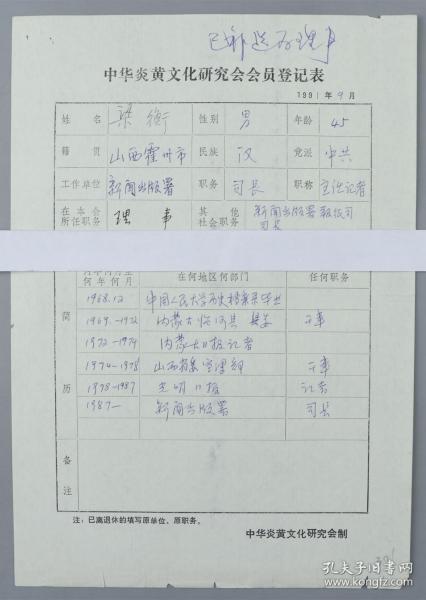 已邮送为理事
中华炎黄文化研究会会员登记表
1991年9月
姓名 梁衡 性别 男 年龄 45
籍贯 山西霍州市 民族 汉 党派 中共
工作单位 新闻出版署 职务 司长 职称 主任记者
在本会所任职务 理事 其他社会职务 新闻出版署报纸司司长
何年何月 在何地区何部门 任何职务
简历
1968.12 中国人民大学历史档案系毕业
1969.-1972 内蒙古临河县 干事
1972-1974 内蒙古日报记者
1974-1978 山西省委宣传部 干事
1978-1987 光明日报 记者
1987- 新闻出版署 司长
备注
注:已离退休的填写原单位、原职务。
中华炎黄文化研究会制
孔夫子旧书网
www.kongfz.com